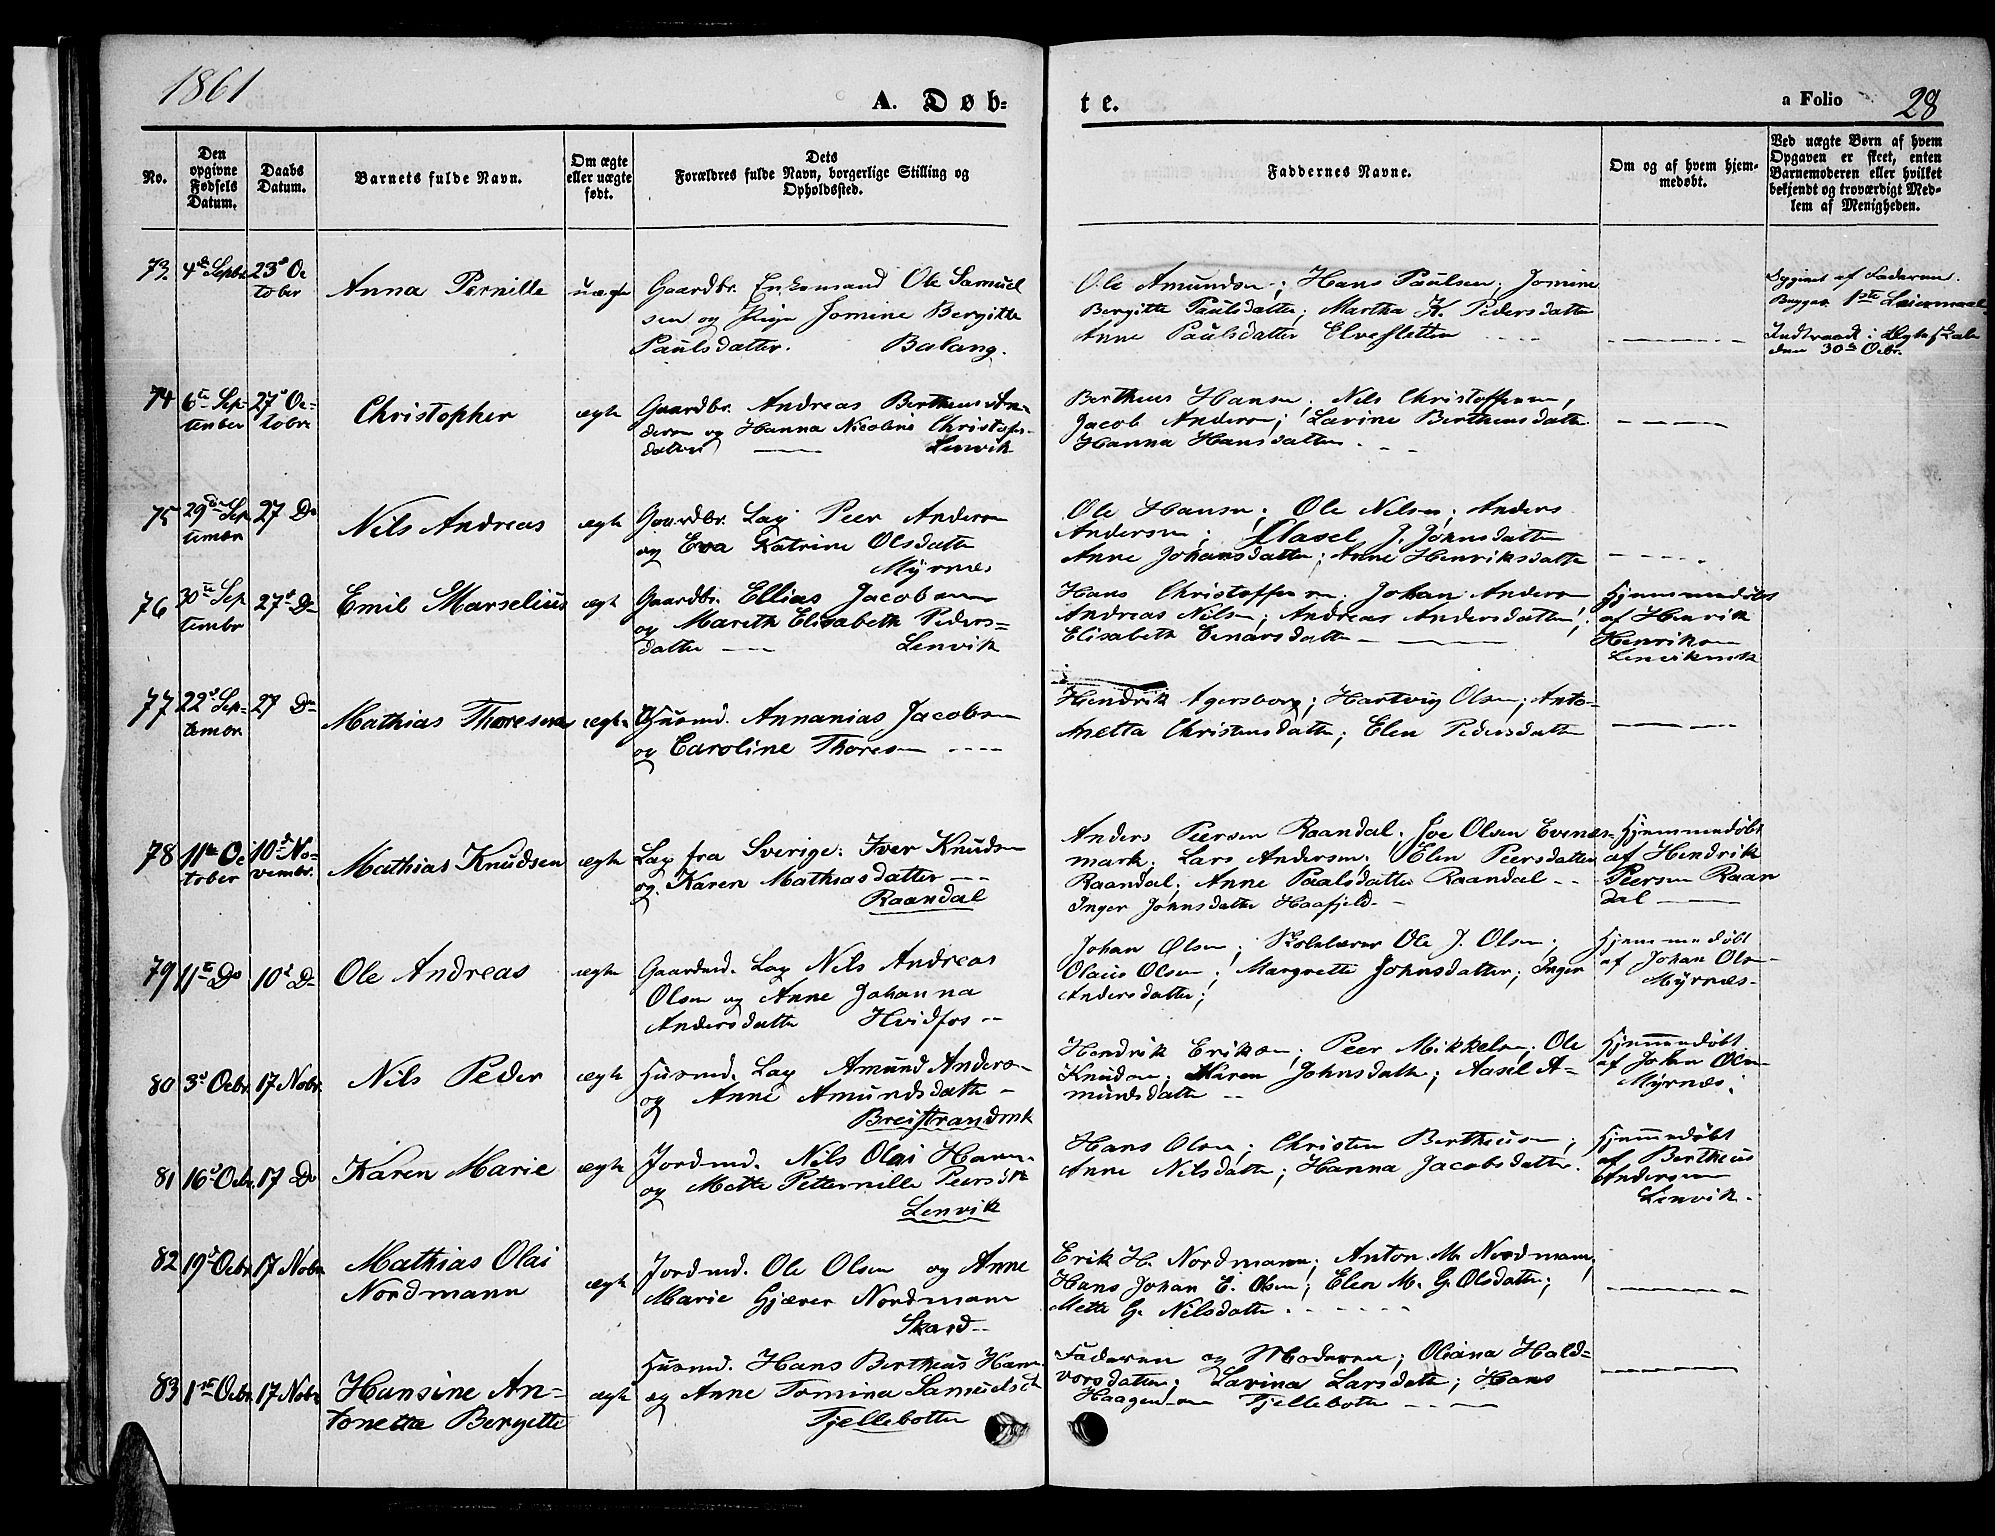 1861
A. Døb-
te.
a Folio 28
No.
Den opgivne Fødsels Datum.
Daabs Datum.
Barnets fulde Navn.
Om ægte eller uægte født.
Dets Forældres fulde Navn, borgerlige Stilling og Opholdssted.
Faddernes Navne.
Om og af hvem hjem-
medøbt.
Ved uægte Børn af hvem
Opgaven er skeet, enten
Barnemoderen eller hvilket
bekjendt og troværdigt Med-
lem af Menigheden.
73. 4de Septbr 23de Oc
tober
Anna Pernille
uægte
Gaardbr. Enkemand Ole Samuel
sen og Pige Jomine Bergitte
Paulsdatter. Balang.
Ole Amundsen; Hans Paulsen; Jomine
Bergitte Paulsdatter; Martha H. Pedersdatter
Anne Paulsdatter Elvesletten
af Faderen.
Begges 1ste Leiermaal
Indtraadt i Ægteskab
den 30te Octbr.
74 6te Sep-
tember 27de Oc-
tobr
Christopher
ægte
Gaardbr. Andreas Bertheus An-
dersen og Hanna Nicoline Christofers-
datter Lenvik
Bertheus Hansen; Nils Christoffersen,
Jacob Andersen; Lavine Bertheusdatter
Hanna Hansdatter
75 29de Sep
tembr 27 Do
Nils Andreas
ægte
Gaardbr. Lap Peer Andersen
og Eva Katrine Olsdatter
Myrnes
Ole Hansen; Ole Nilsen; Anders
Andersen; J. Johnsdatter
Anne Johansdatter; Anne Henriksdatter
76 30te Sep
tembr 27de Do
Emil Marselius
ægte
Gaardbr. Ellias Jacobsen
og Mareth Elisabeth Peders-
datter Lenvik
Hans Christoffersen Johan Andersen
Andreas Nilsen; Andreas Andersdatter;
Elisabeth Einarsdatter
Hjemmedøbt
af Henrik
Henriksen
Lenvikmrk
77 22de Sep-
tembr 27 Do
Mathias Thoresen
ægte
Husmd. Annanias Jacobsen
og Caroline Thoresen
Hendrik Agersborg; Hartvig Olsen; Anto-
netta Christensdatter; Elen Pedersdatter
78 11te Oc
tober 10de No-
vembr.
Mathias Knudsen
ægte
Lap fra Sverige: Iver Knudsen
og Karen Mathiasdatter
Raandal
Anders Peersen Raandal. Joe Olsen Evenes-
mark; Lars Andersen; Elen Peersdatter
Raandal; Anne Paalsdatter Raandal
Inger Johnsdatter Haafjeld
Hjemmedøbt
af Hendrik
Peersen Raan
dal
79 11te Do 10de Do
Ole Andreas
ægte
Gaardmd. Lap Nils Andreas
Olsen og Anne Johanna
Andersdatter Hvidfos
Johan Olsen; Skolelærer Ole J. Olsen;
Olaus Olsen; Margrette Johnsdatter; Inger
Andersdatter;
Hjemmedøbt
af Johan Olsen
Myrnæs
80 3de Octbr. 17 Nobr.
Nils Peder
ægte
Husmd. Lap Amund Andersen
og Anne Amundsdatter
Breistrandmk
Hendrik Eriksen; Peer Mikkelsen; Ole
Knudsen; Karen Johnsdatter; Aasel A-
mundsdatter
Hjemmedøbt
af Johan Olsen
Myrnæs
81 16de Octbr. 17 Do
Karen Marie
ægte
Jordmd. Nils Olai Hansen
og Mette Petternille Peersdtr
Lenvik
Hans Olsen; Christen Bertheusen;
Anne Nilsdatter; Hanna Jacobsdatter.
Hjemmedøbt
af Bertheus
Andersen
Lenvik
82 19de Octbr 17 Nobr
Mathias Olai
Nordmann
ægte
Jordmd. Ole Olsen og Anne
Marie Gjærer Nordmann
Skard
Erik H. Nordmann; Anton M. Nordmann;
Hans Johan E. Olsen; Elen M. G. Olsdatter;
Mette G. Nilsdatter
83 1ste Octbr 17 Nobr
Hansine An-
tonetta Bergette
ægte
Husmd. Hans Bertheus Hansen
og Anne Tomina Samuelsdtr
Fjellebotten
Faderen og Moderen; Oliana Hald-
vorsdatter; Lavina Larsdatter; Hans
Haagensen Fjellebotten